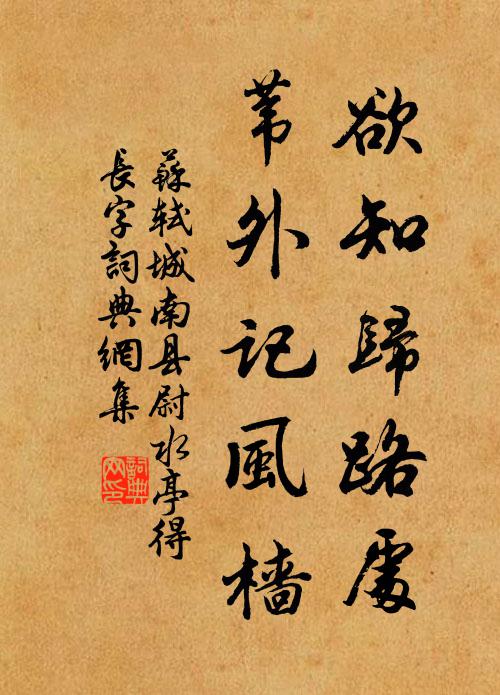 欲知歸路處
葦外記風檣
蘇軾城南县尉水亭得
長字詞典網集
詞典
网印